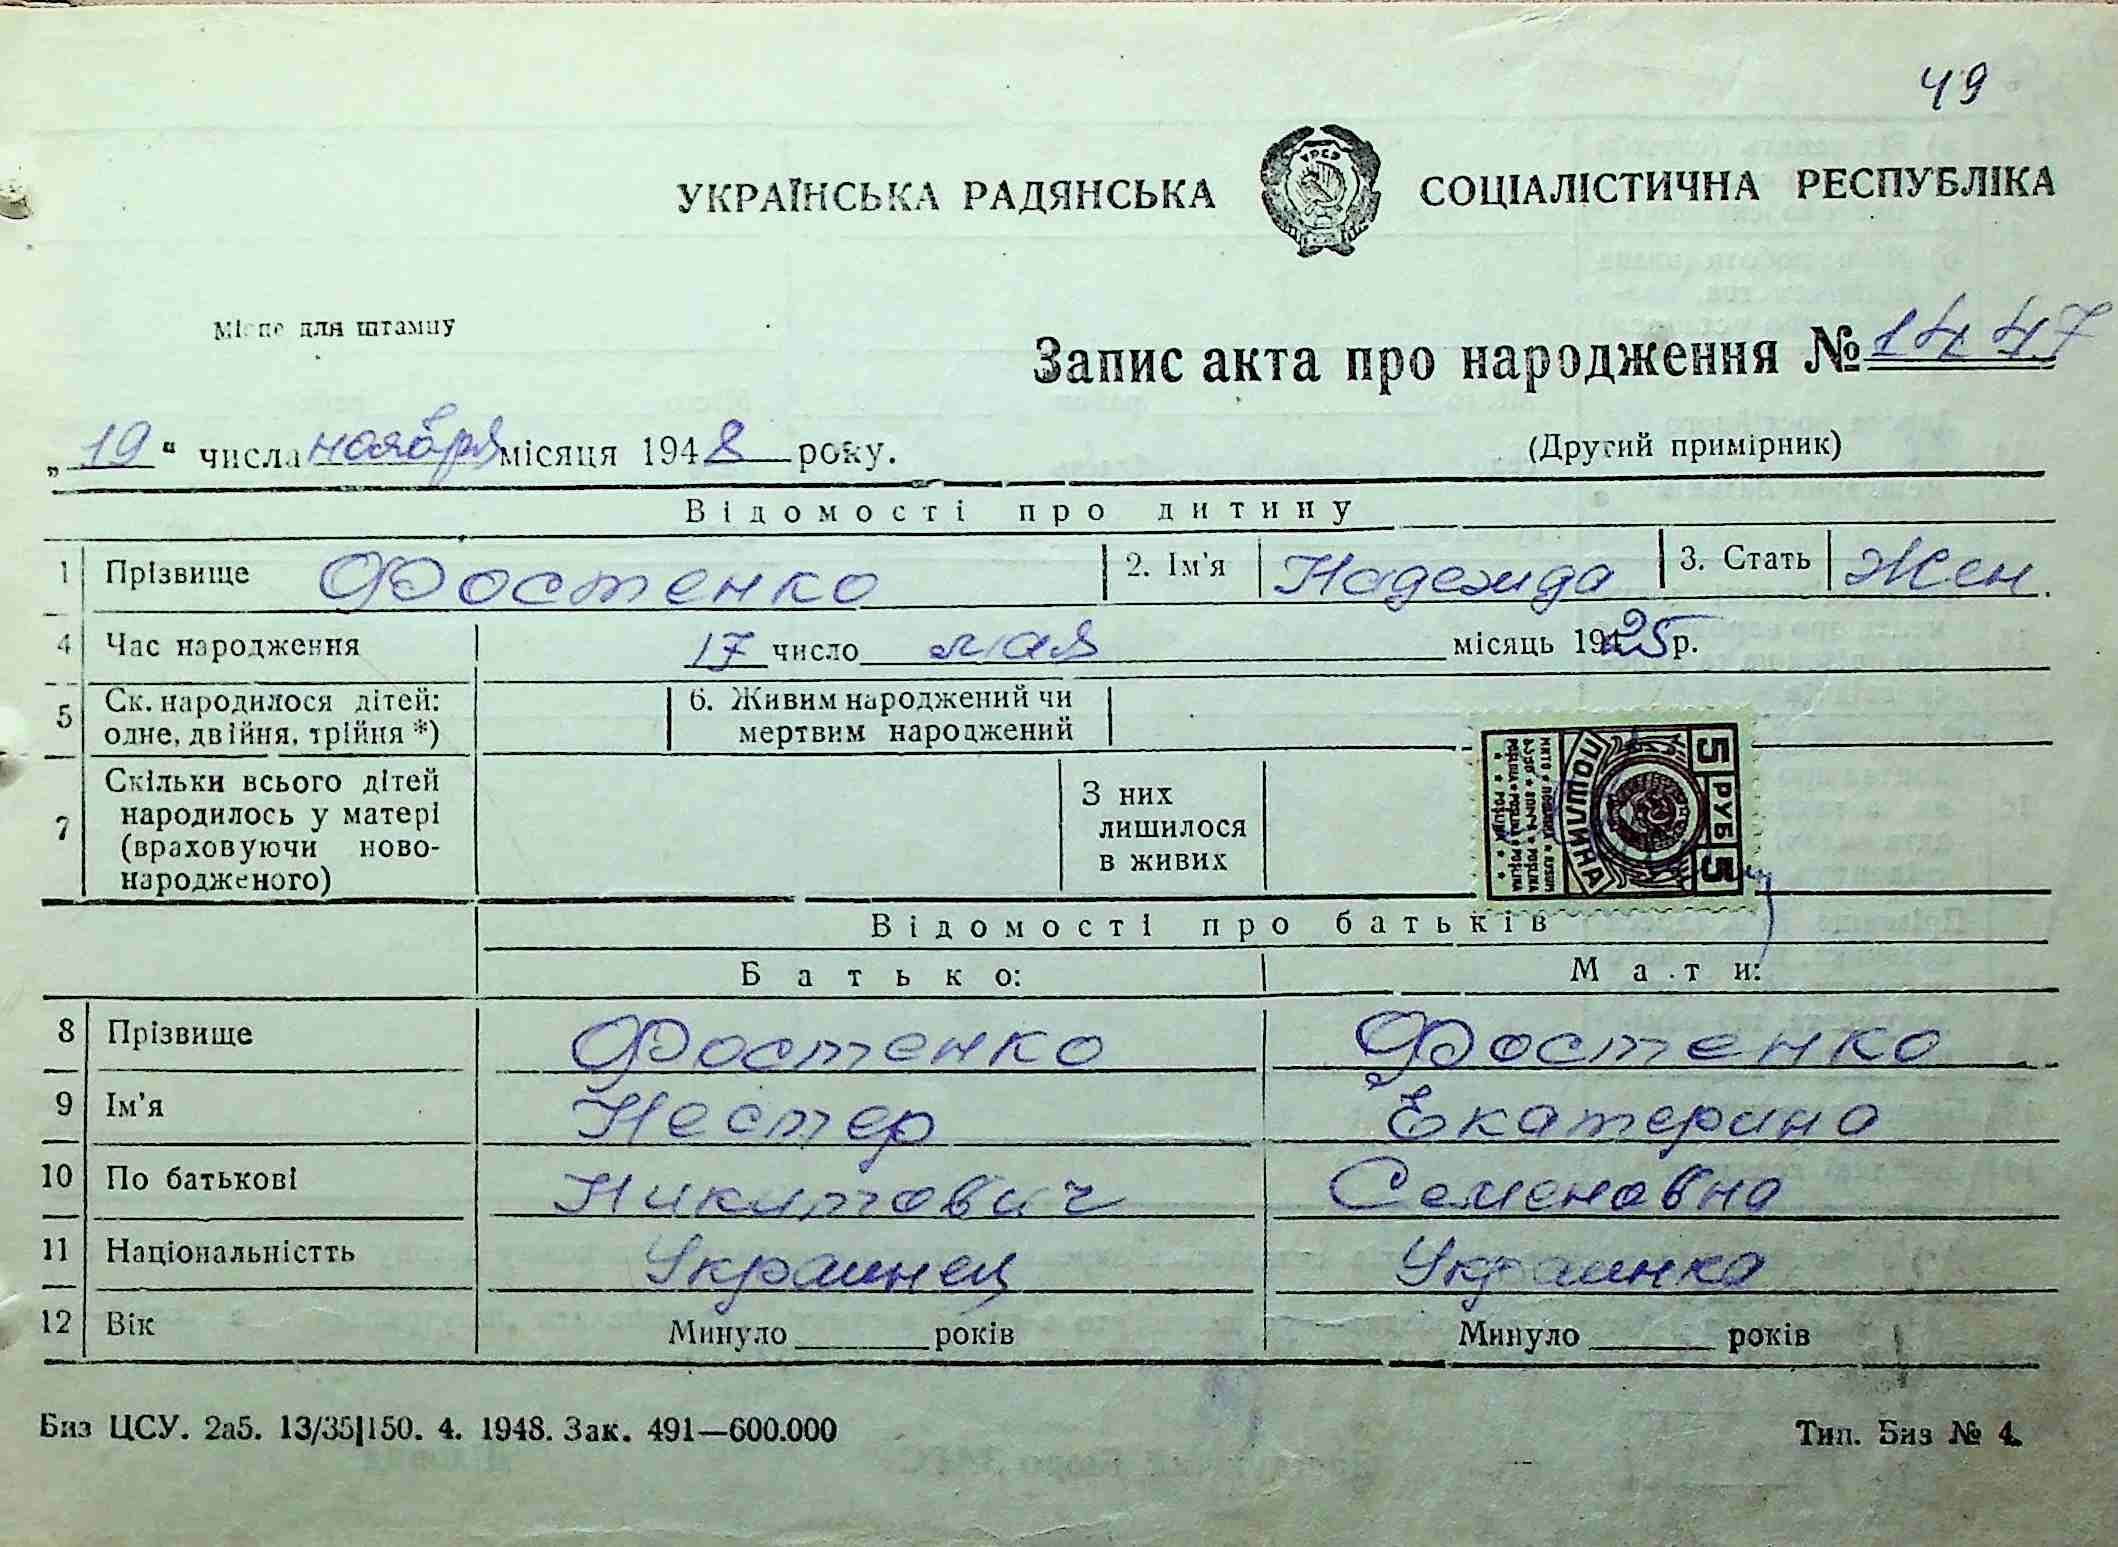 49
УКРАЇНСЬКА РАДЯНСЬКА СОЦІАЛІСТИЧНА РЕСПУБЛІКА
Місце для штампу
Запис акта про народження № 1447
„19“ числа ноября місяця 1948 року.
(Другий примірник)
Відомості про дитину
1 Прізвище Фостенко 2. Ім'я Надежда 3. Стать Жен.
4 Час народження 17 число мая місяць 1925 р.
5 Ск. народилося дітей: одне, двійня, трійня *) 6. Живим народжений чи мертвим народжений
7 Скільки всього дітей народилось у матері (враховуючи ново-народженого) З них лишилося в живих
5 РУБ 5
ПОШЛИНА
Відомості про батьків
Батько: Мати:
8 Прізвище Фостенко Фостенко
9 Ім'я Нестер Екатерина
10 По батькові Никитович Семеновна
11 Національністть Украинец Украинка
12 Вік Минуло ______ років Минуло ______ років
Биз ЦСУ. 2а5. 13/35|150. 4. 1948. Зак. 491—600.000 Тип. Биз № 4.